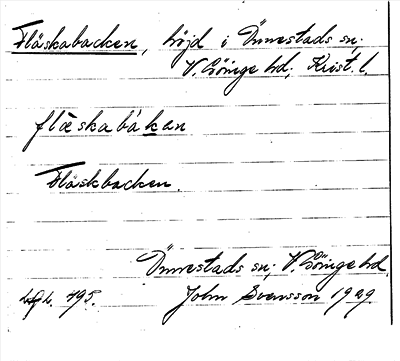 Fläskabacken, höjd i Önnestads sn;
V. Göinge hd, Krist. l.
flæskabákan
Fläskbacken.
Önnestads sn; V. Göinge hd
795. John Svensson 1929.